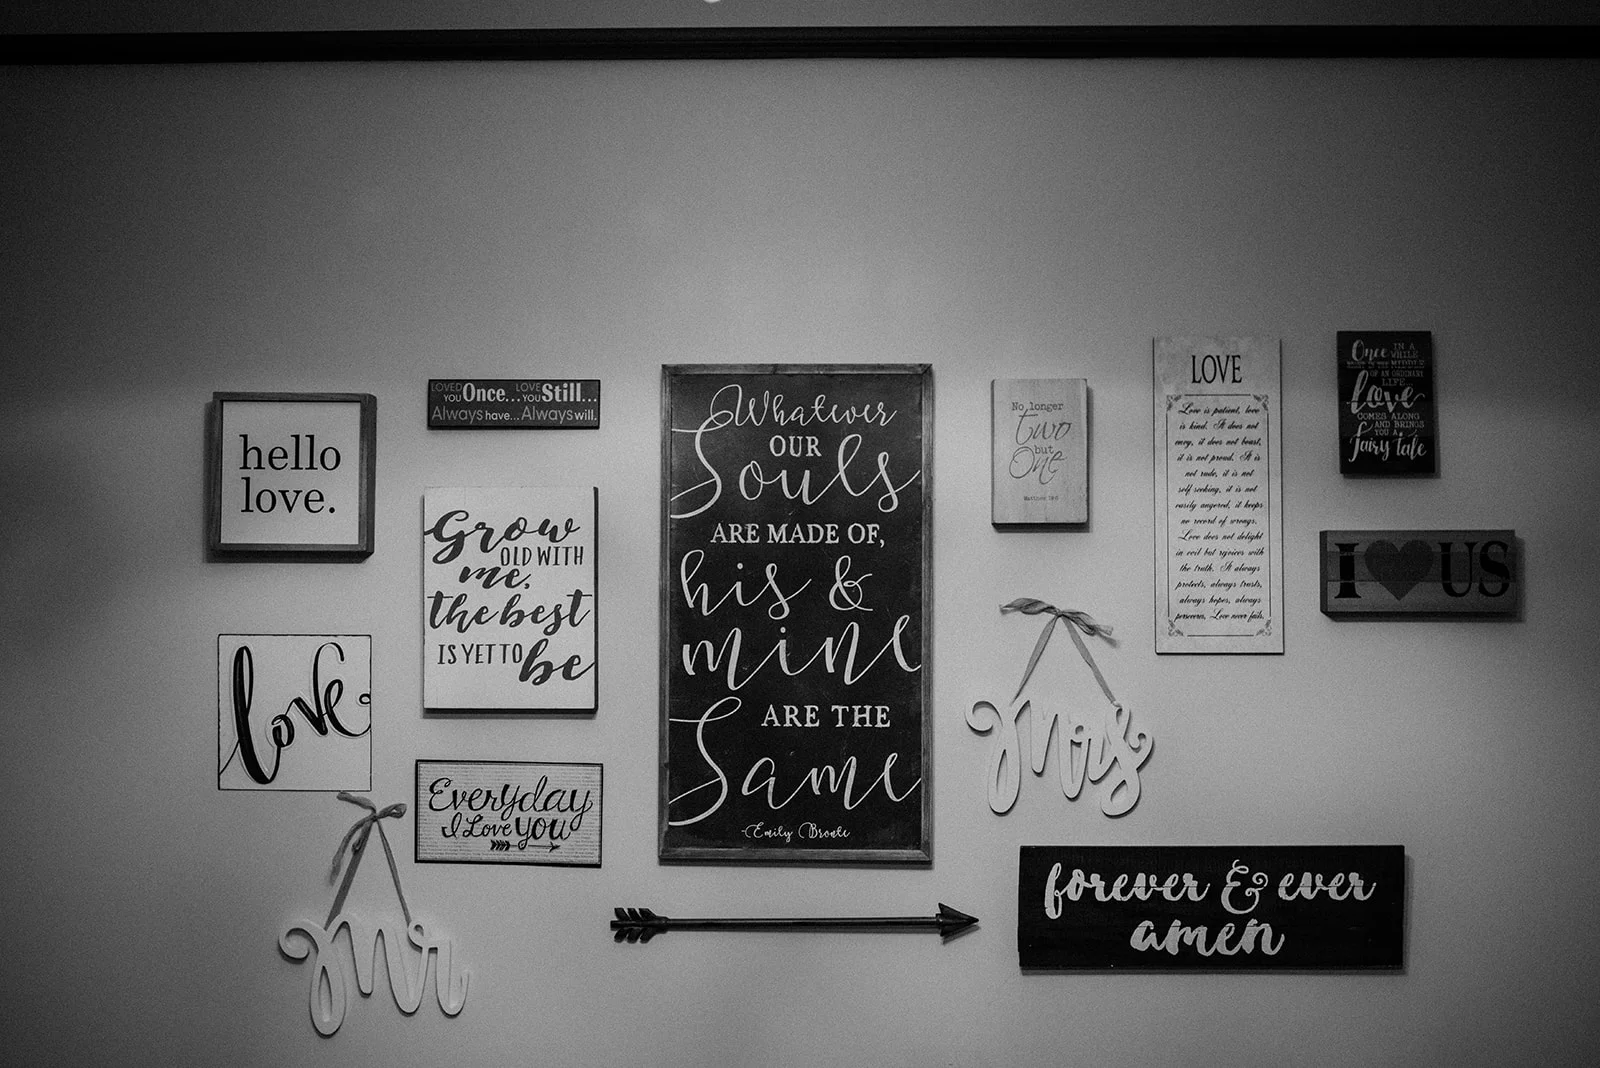 hello
love.
LOVED YOU Once... LOVE YOU Still...
Always have... Always will.
Grow
OLD WITH
me,
the best
IS YET TO be
love
Everyday
I Love you
Mr
Whatever
OUR
Souls
ARE MADE OF,
his &
mine
ARE THE
Same
-Emily Bronte
No longer
two
but
One
Matthew 19:6
Mrs
LOVE
Love is patient, love
is kind. It does not
envy, it does not boast,
it is not proud. It is
not rude, it is not
self seeking, it is not
easily angered, it keeps
no record of wrongs.
Love does not delight
in evil but rejoices with
the truth. It always
protects, always trusts,
always hopes, always
perseveres. Love never fails.
Once IN A
WHILE
RIGHT IN THE MIDDLE
OF AN ORDINARY
LIFE...
love
COMES ALONG
AND BRINGS
YOU A
fairy tale
I ♥ US
forever & ever
amen